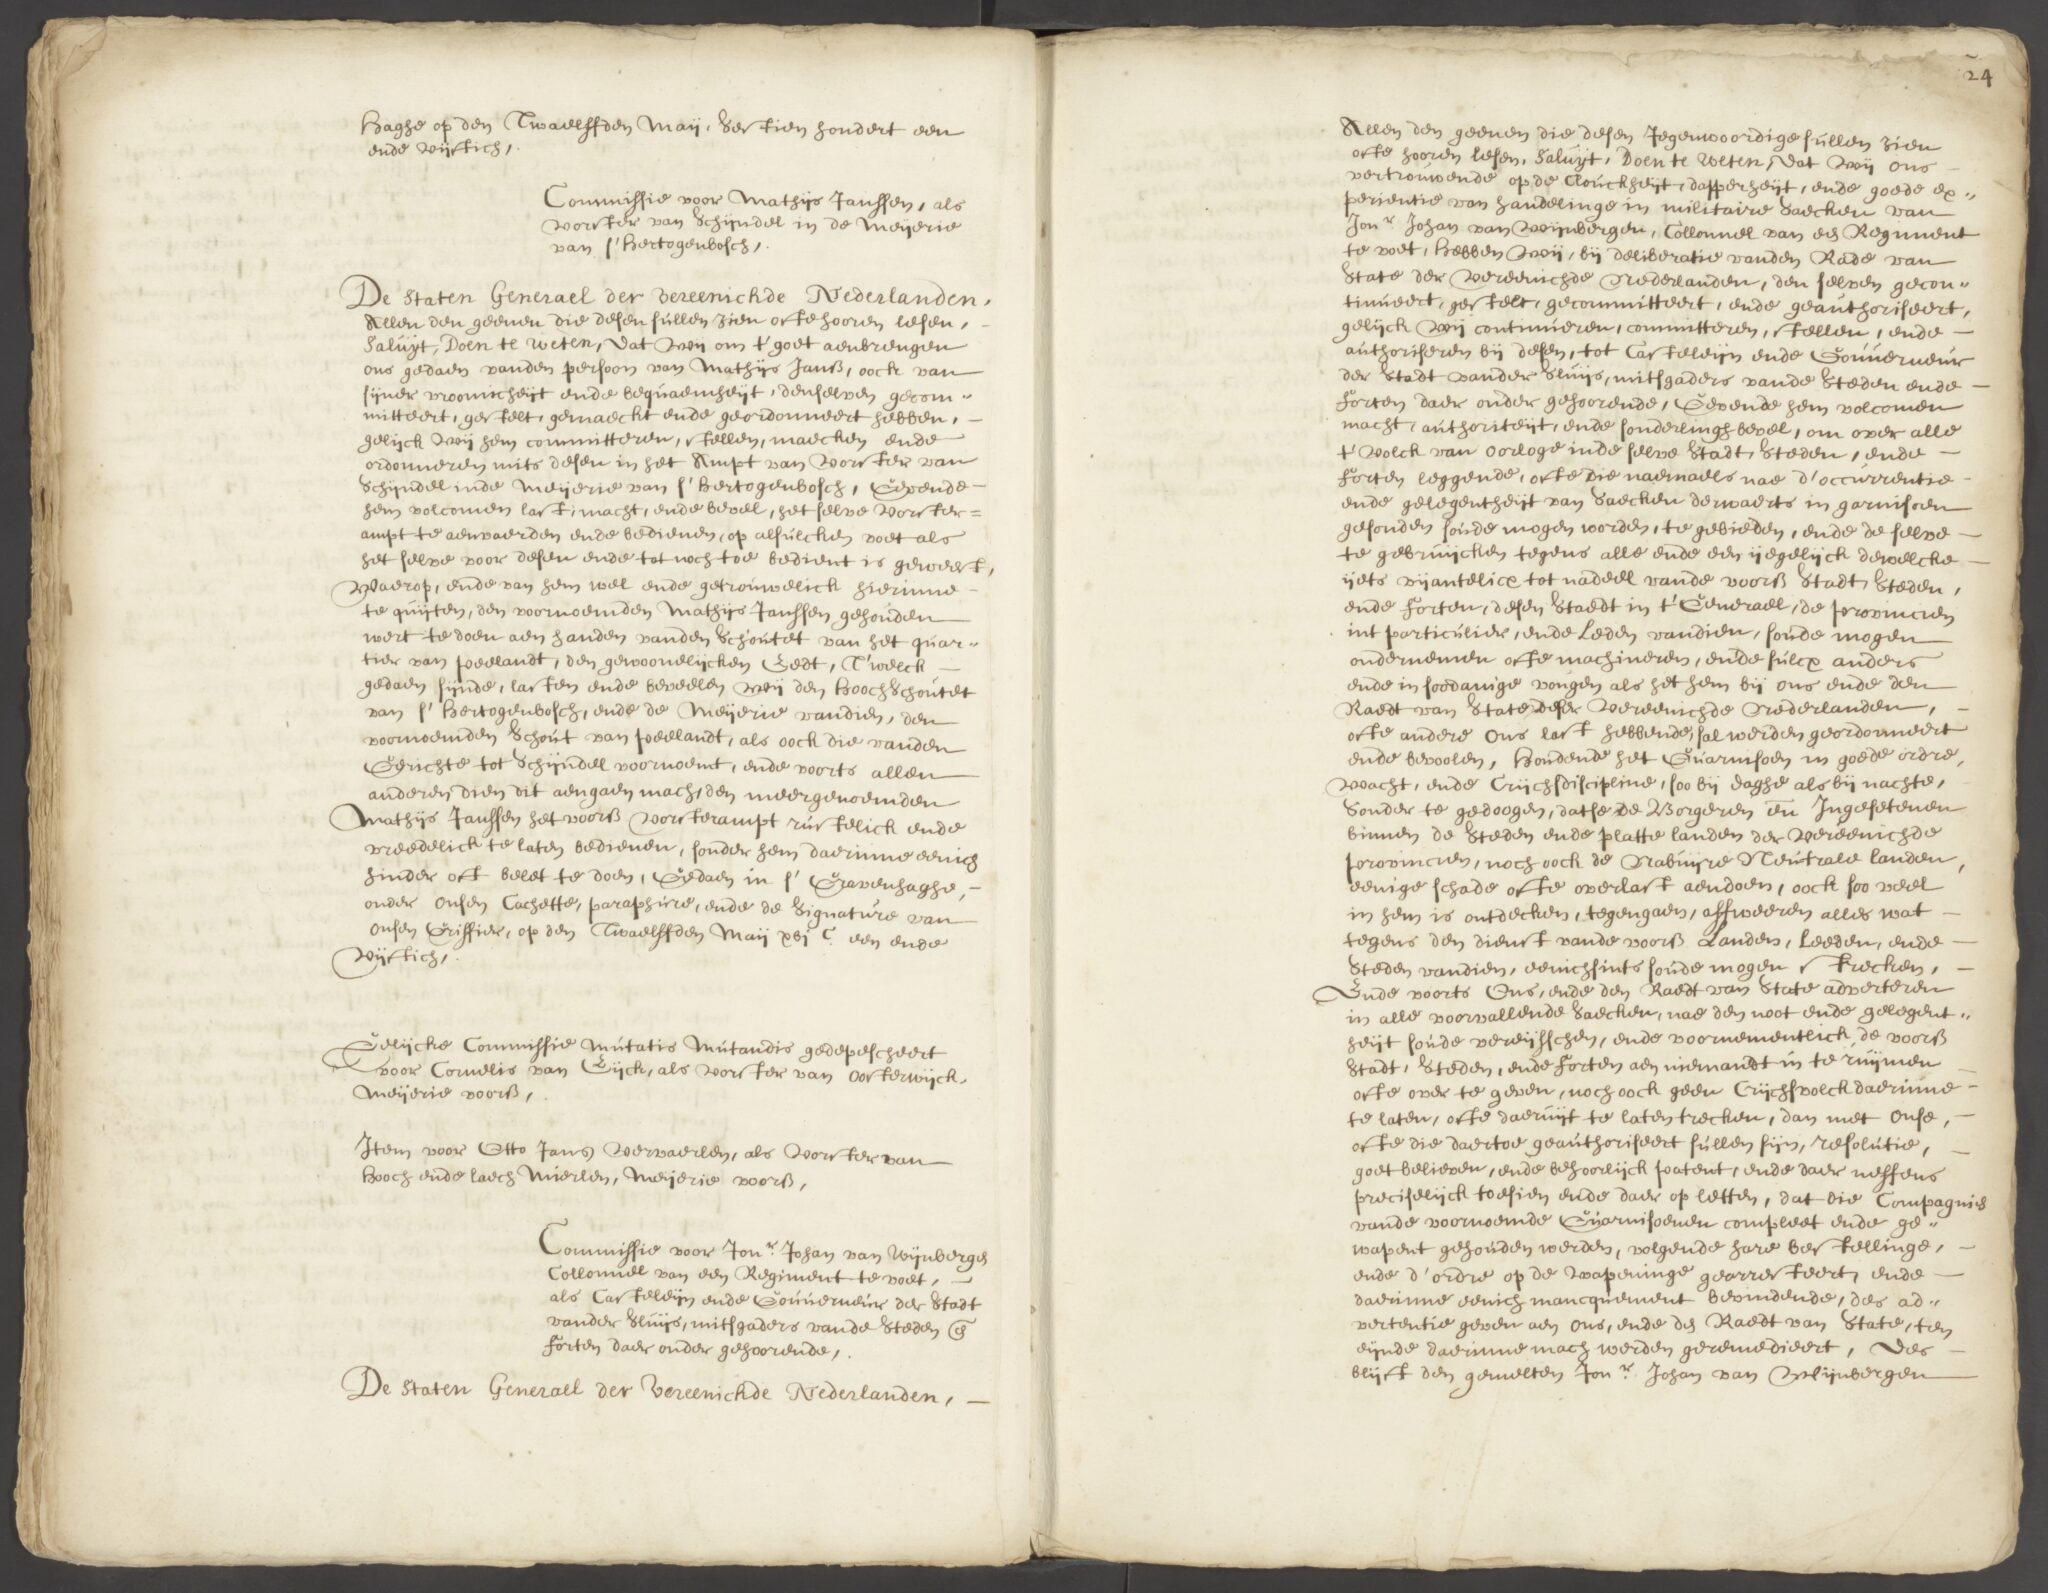 Haghe op den Twaelffden Maij, Sestien hondert een
ende vijftich,
Commissie voor Mathijs Janssen, als
vorster van Schijndel in de Meijerie
van s'Hertogenbosch,
De Staten Generael der Vereenichde Nederlanden,
Allen den geenen die desen sullen zien ofte hooren lesen,
Saluijt, Doen te weten, dat wij om t'goet aenbrengen
ons gedaen vanden persoon van Mathijs Janß, oock van
sijner vroomicheijt ende bequaemheijt, denselven gecom"
mitteert, gestelt, gemaeckt ende geordonneert hebben,
gelijck wij hem committeren, stellen, maecken ende
ordonneren mits desen in het Ampt van Vorster van
Schijndel inde Meijerie van s'Hertogenbosch, Gevende
hem volcomen last, macht, ende bevel, het selve Vorster=
ampt te aenvaerden ende bedienen, op alsulcken voet als
het selve voor desen ende tot noch toe bedient is geweest,
Waerop, ende van hem wel ende getrouwelick hierinne
te quijten, den voornoemden Mathijs Janssen gehouden
wert te doen aen handen vanden Schoutet van het quar"
tier van Peelandt, den gewoonelijcken Eedt, T'welck
gedaen sijnde, lasten ende beveelen wij den HoochSchoutet
van s'Hertogenbosch, ende de Meijerie vandien, den
voornoemden Schout van Peelandt, als oock die vanden
Gerichte tot Schijndel voornoemt, ende voorts allen
anderen dien dit aengaen mach, den meergenoemden
Mathijs Janssen het voorß Vorsterampt rustelick ende
vreedelick te laten bedienen, sonder hem daerinne eenich
hinder oft belet te doen, Gedaen in s'Gravenhaghe,
onder onsen Cachette, paraphure, ende de Signature van
onsen Griffier, op den Twaelffden Maij xvi C. een ende
Vijftich,
Gelijcke Commissie mutatis mutandis gedepescheert
voor Cornelis van Eijck, als vorster van Oosterwijck,
Meijerie voorß,
Item voor Otto Jans Vervaerlen, als Vorster van
Hooch ende laech Mierlen, Meijerie voorß,
Commissie voor Jonr. Johan van Wijnbergen
Collonnel van een Regiment te voet,
als Casteleijn ende Gouverneur der Stadt
vander Sluijs, mitsgaders vande Steden en
Forten daer onder gehoorende,
De Staten Generael der Vereenichde Nederlanden,
24
Allen den geenen die desen Jegenwoordige sullen zien
ofte hooren lesen, Saluijt, Doen te weten, dat wij ons
vertrouwende op de Clouckheijt, dapperheijt, ende goede ex"
perientie van handelinge in militaire Saecken van
Jonr Johan van Wijnbergen, Collonnel van een Regiment
te voet, hebben wij, bij deliberatie vanden Rade van
State der Vereenichde Nederlanden, den selven gecon"
tinueert, gestelt, gecommitteert, ende geauthoriseert,
gelijck wij continueren, committeren, stellen, ende
authoriseren bij desen, tot Casteleijn ende Gouverneur
der Stadt vander Sluijs, mitsgaders vande Steden ende
Forten daer onder gehoorende, Gevende hem volcomen
macht, authoriteijt, ende sonderlingh bevel, om over alle
t'volck van oorloge inde selve Stadt, Steden, ende
Forten leggende, ofte die naemaels nae d'occurrentie
ende gelegentheijt van Saecken derwaerts in garnisoen
gesonden soude mogen worden, te gebieden, ende de selve
te gebruijcken tegens alle ende een ijegelijck dewelcke
ijets vijantelicx tot nadeel vande voorß Stadt, Steden,
ende Forten, desen Staedt in t'Generael, de provincien
int particulier, ende Leden vandien, soude mogen
ondernemen ofte machineren, ende sulcx anders
ende in soodanige vougen als het hem bij ons ende den
Raedt van State deser Vereenichde Nederlanden,
ofte andere ons last hebbende, sal werden geordonneert
ende bevoolen, Houdende het Guarnisoen in goede ordre,
wacht, ende Crijchsdiscipline, soo bij daghe als bij nachte,
Sonder te gedoogen, datse de Borgeren en Ingesetenen
binnen de Steden ende platte landen der Vereenichde
provincien, noch oock de Nabuijre Neutrale landen,
eenige schade ofte overlast aendoen, oock soo veel
in hem is ontdecken, tegengaen, affweeren alles wat
tegens den dienst vande voorß Landen, Leeden, ende
Steden vandien, eenichsints soude mogen strecken,
Ende voorts Ons, ende den Raedt van State adverteren
in alle voorvallende Saecken, nae den noot ende gelegent"
heijt soude vereijsschen, ende voornementlick de voorß
Stadt, Steden, ende Forten aen niemandt in te ruijmen
ofte over te geven, noch oock geen Crijchsvolck daerinne
te laten, ofte daeruijt te laten trecken, dan met onse,
ofte die daertoe geauthoriseert sullen sijn, resolutie,
goet believen, ende behoorlijck patent, ende daer neffens
preciselijck toesien ende daer op letten, dat die Compagnien
vande voornoemde Guarnisoenen compleet ende ge"
wapent gehouden werden, volgende hare bestellinge,
ende d'ordre op de wapeninge gearresteert, ende
daerinne eenich mancquement bevindende, des ad"
vertentie geven aen Ons, ende den Raedt van State, ten
eijnde daerinne mach werden geremedieert, Des
blijft den gemelten Jonr. Johan van Wijnbergen